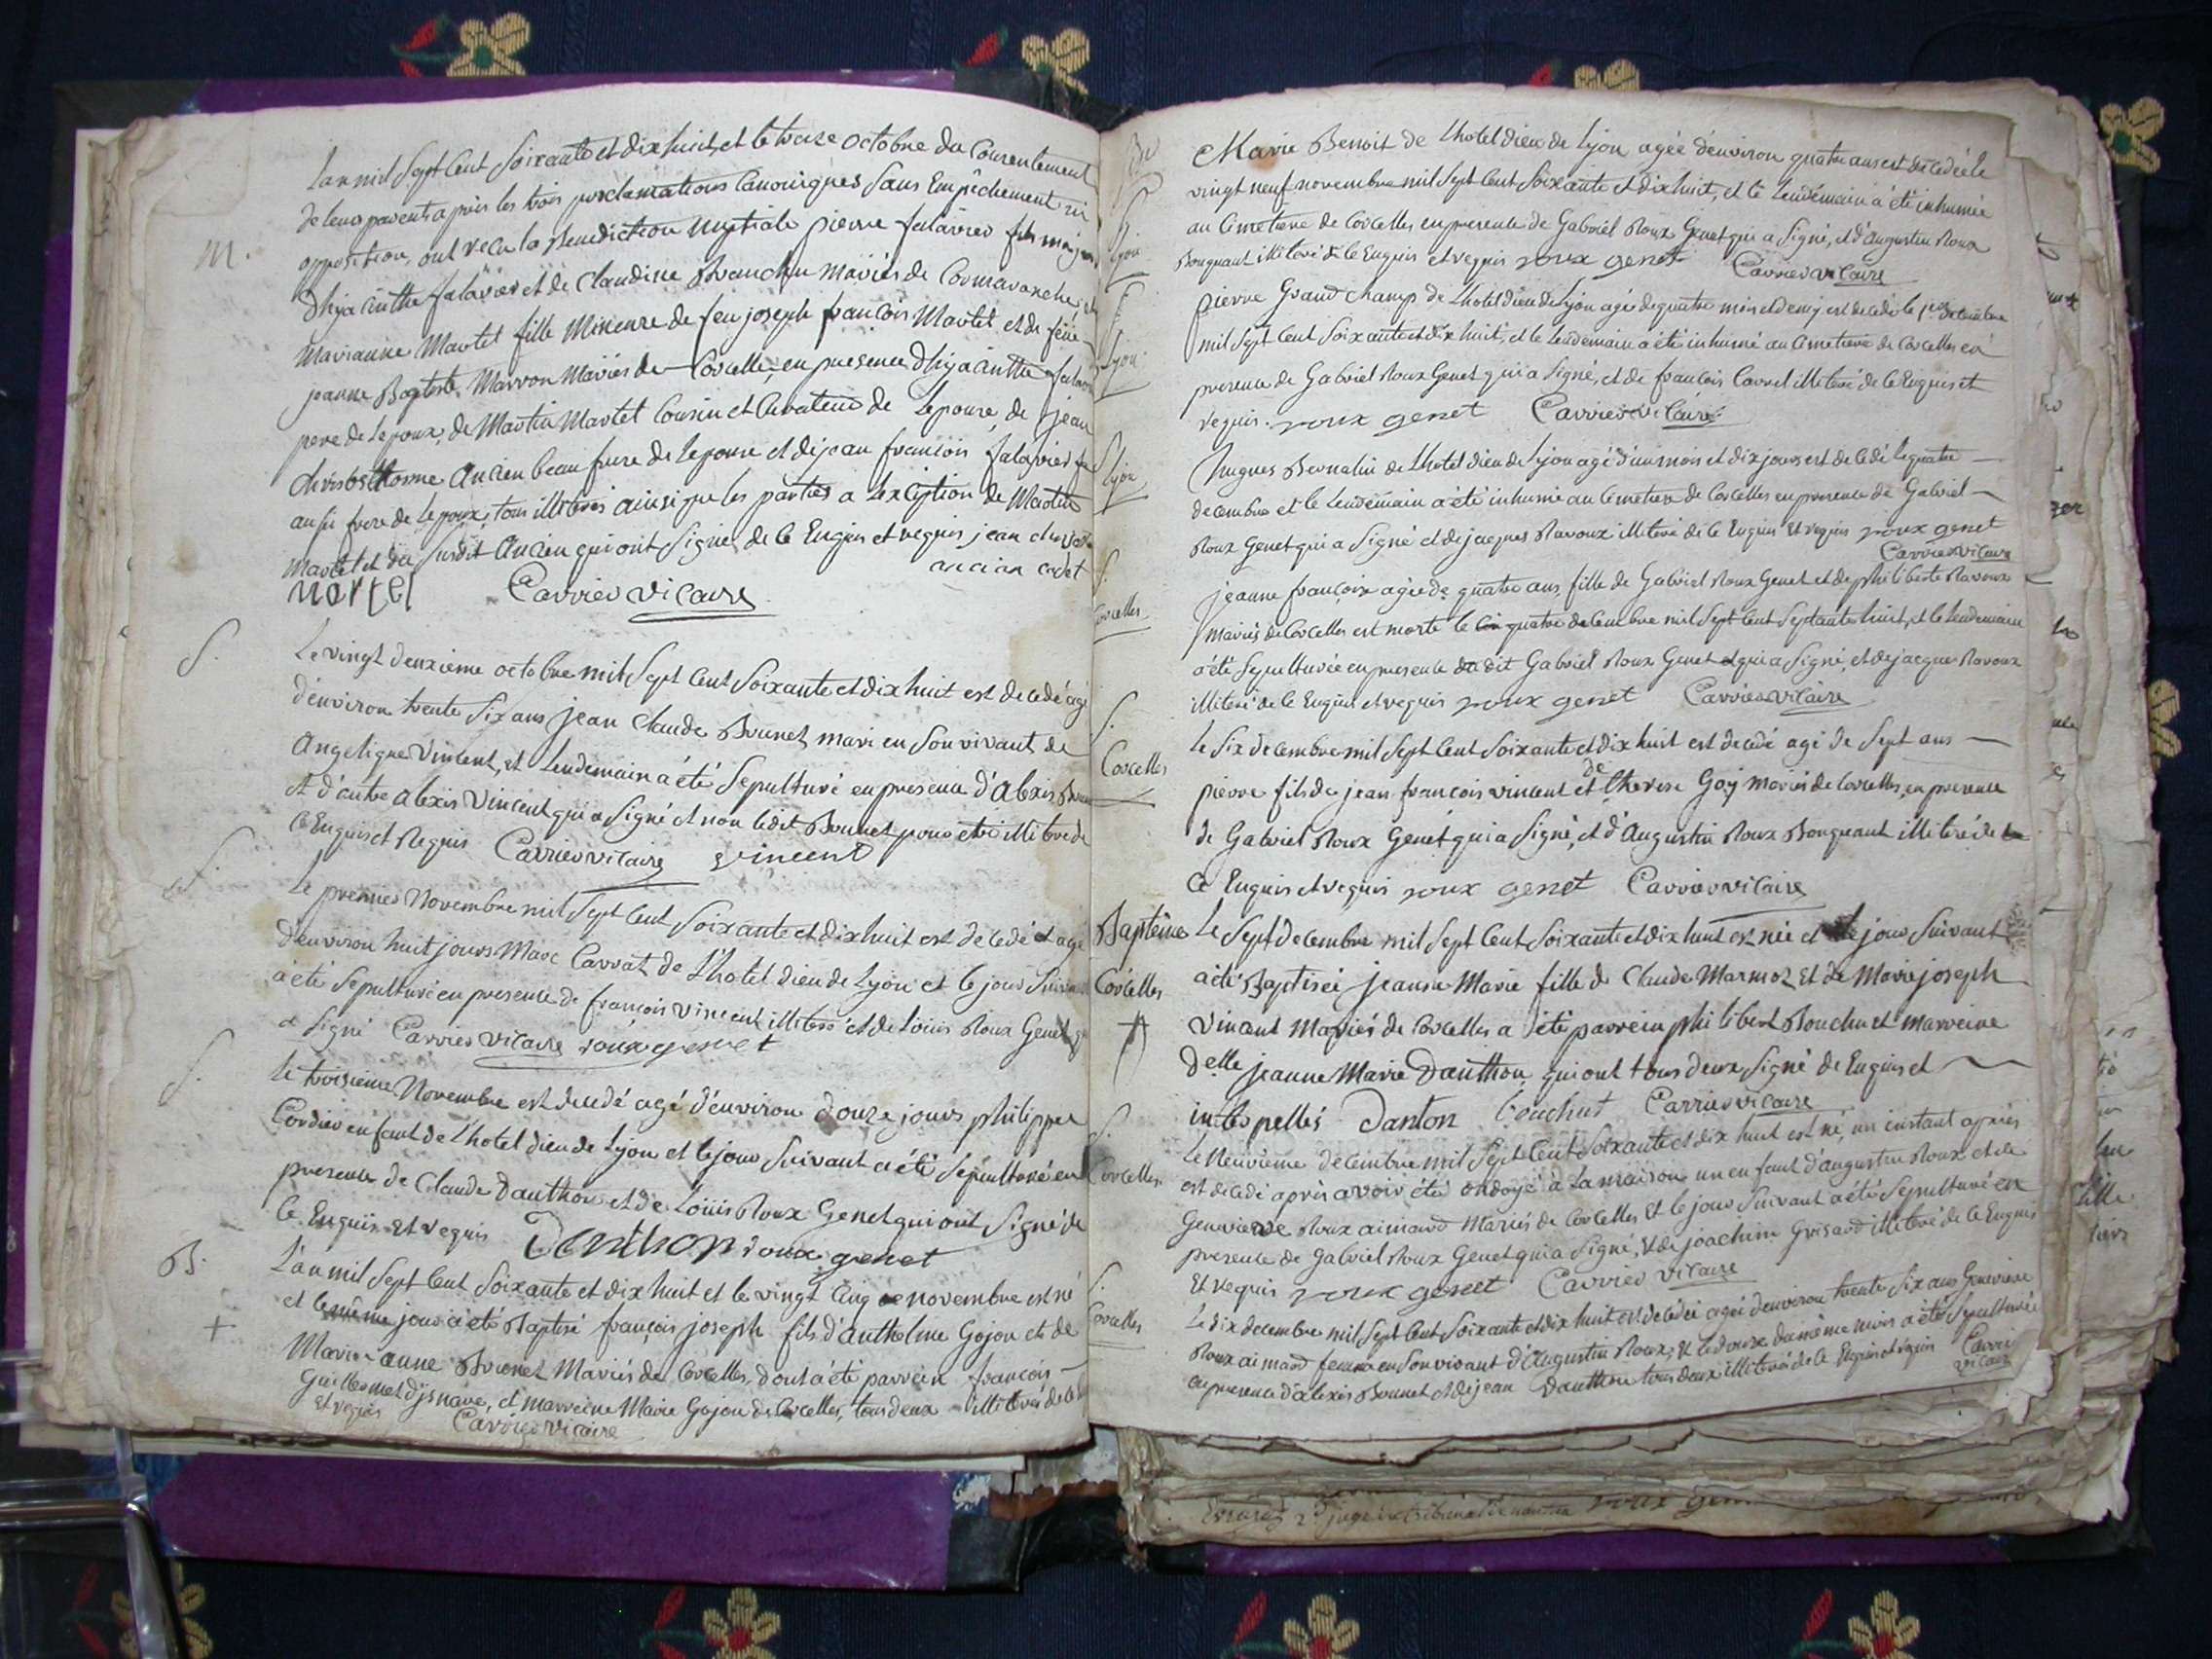 L'an mil Sept Cent Soixante et dix huit, et le treize octobre du Consentement
de leurs parents apres les trois proclamations Canoniques Sans Empêchement ni
M. opposition, ont recu la Benediction nuptiale pierre falavier fils majeur
D'hyacinthe falavier et de Claudine Branche mariés de Cormaranche, et
Marianne Martel fille Mineure de feu joseph francois Martel et de feüe
jeanne Baptiste Marron Mariés de Corcelle, en presence D'hyacinthe falavier
pere de Lepoux, de Martin Martel Cousin et Curateur de Lepouse, de jean
Chrisosthome Ancien beau frere de Lepouse et de jean francois falavier
aussi frere de Lepoux, tous illiterés ainsi que les parties a Lexception de Martin
Martel et du Susdit Ancien qui ont Signé, de Ce Enquis et requis jean
martel Carrier vicaire ancian cadet
S. Le vingt deuxieme octobre mil Sept Cent Soixante et dix huit est decedé agé
d'environ trente Six ans jean Claude Brunet, mari en Son vivant de
Angelique Vincent, et Lendemain a été Sepulturé en presence d'Alexis
et d'autre alexis Vincent qui a Signé et non ledit Brunet pour etre illiteré de
Ce Enquis et Requis Carrier vicaire vincent
S. Le premier Novembre mil Sept Cent Soixante et dix huit est decedé et agé
d'environ huit jours Marc Carrat de L'hotel dieu de Lyon et le jour Suivant
a été Sepulturé en presence de francois Vincent illiteré et de Loüis Roux Genet
a Signé Carrier vicaire roux genet
S. Le troisieme Novembre est decedé agé d'environ douze jours philippe
Cordier enfant de L'hotel dieu de Lyon et le jour Suivant a été Sepulturé en
presence de Claude Dauthon et de Loüis Roux Genet qui ont Signé de
Ce Enquis et requis Danthon roux genet
B. L'an mil Sept Cent Soixante et dix huit et le vingt Cinq novembre est né
+ et le même jour a été Baptisé françois joseph fils d'anthelme Gojon et de
Marie-anne Brunet Mariés de Corcelles, dont a été parrein francois
Guillermet d'jsnave, et marreine Marie Gojon de Corcelles, tous deux illiterés de Ce
et requis Carrier vicaire
Marie Benoit de Lhotel dieu de Lyon agée d'environ quatre ans est decedée le
vingt neuf novembre mil Sept Cent Soixante et dix huit, et le Lendemain a été inhumée
S. au Cimetiere de Corcelles en presence de Gabriel Roux Genet qui a Signé, et d'Augustin Roux
Lyon Bonquant illiteré de Ce Enquis et requis roux genet Carrier vicaire
S. pierre Grand champ de Lhotel dieu de Lyon agé de quatre mois et demy est decedé le 1er decembre
Lyon mil Sept Cent Soixante et dix huit, et le Lendemain a été inhumé au Cimetiere de Corcelles en
presence de Gabriel Roux Genet qui a Signé, et de francois Carrel illiteré de Ce Enquis et
requis. roux genet Carrier vicaire
S. Hugues Bernalin de Lhotel dieu de Lyon agé d'un mois et dix jours est decedé le quatre
Lyon decembre et le Lendemain a été inhumé au Cimetiere de Corcelles en presence de Gabriel
Roux Genet qui a Signé et de jacques Ravoux illiteré de Ce Enquis Et requis roux genet
Carrier vicaire
S. jeanne françoise agée de quatre ans, fille de Gabriel Roux Genet et de philiberte Ravoux
Corcelles mariés de Corcelles est morte le quatre decembre mil Sept Cent Septante huit, et le Lendemain
a été Sepulturée en presence dudit Gabriel Roux Genet qui a Signé, et de jacque Ravoux
illiteré de Ce Enquis et requis roux genet Carrier vicaire
S. Le Six decembre mil Sept Cent Soixante et dix huit est decedé agé de Sept ans
Corcelles pierre fils de jean francois vincent et de therese Goy mariés de Corcelles, en presence
de Gabriel Roux Genet qui a Signé, et d'Augustin Roux Bonquant illiteré de
Ce Enquis et requis roux genet Carrier vicaire
Baptême Le Sept decembre mil Sept Cent Soixante et dix huit est née et le jour Suivant
Corcelles a été Baptisée jeanne Marie fille de Claude Marmoz Et de Marie joseph
+ Vincent Mariés de Corcelles a été parrein philibert Bouchu et marreine
Delle jeanne Marie Dauthon, qui ont tous deux Signé de Enquis et
interpellés Danton bouchut Carrier vicaire
S. Le Neuvieme decembre mil Sept Cent Soixante et dix huit est né, un instant après
Corcelles est decedé après avoir été ondoyé à La maison un enfant d'augustin Roux et de
Genevieve Roux aimard Mariés de Corcelles Et le jour Suivant a été Sepulturé en
presence de Gabriel Roux Genet qui a Signé, Et de joachim Grisard illiteré de Ce Enquis
Et requis roux genet Carrier vicaire
S. Le dix decembre mil Sept Cent Soixante et dix huit est decedée agée d'environ trente Six ans Genevieve
Corcelles Roux aimard femme en Son vivant d'Augustin Roux, & Le douze du même mois a été Sepulturée
en presence d'alexis Brunet et de jean Dauthon tous deux illiterés de Ce Enquis et requis Carrier
vicaire
roux